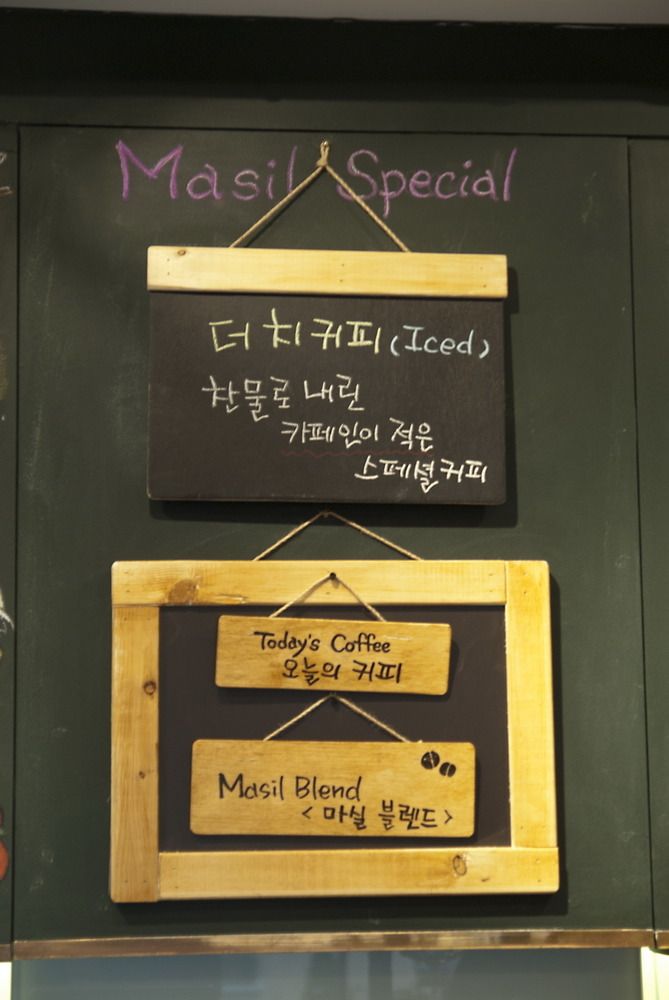 Masil Special
더치커피 (Iced)
찬물로 내린
카페인이 적은
스페셜커피
Today's Coffee
오늘의 커피
Masil Blend
<마실 블렌드>